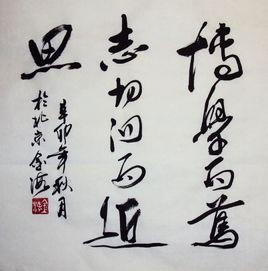 博學而篤
志切問而近
思
辛卯年秋月
於北京